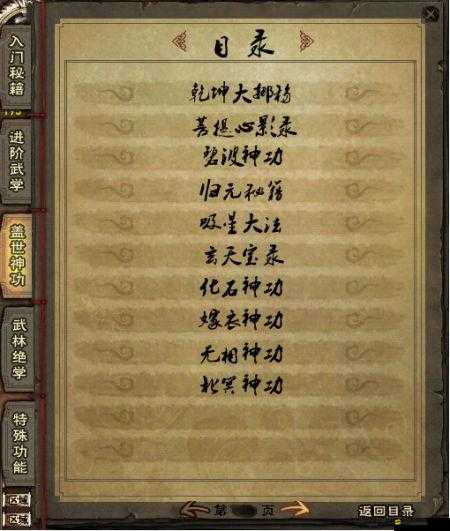 目录
乾坤大挪移
菩提心影录
碧波神功
归元秘籍
吸星大法
玄天宝录
化石神功
嫁衣神功
无相神功
北冥神功
入门秘籍
进阶武学
盖世神功
武林绝学
特殊功能
区域
区域
第 页
返回目录